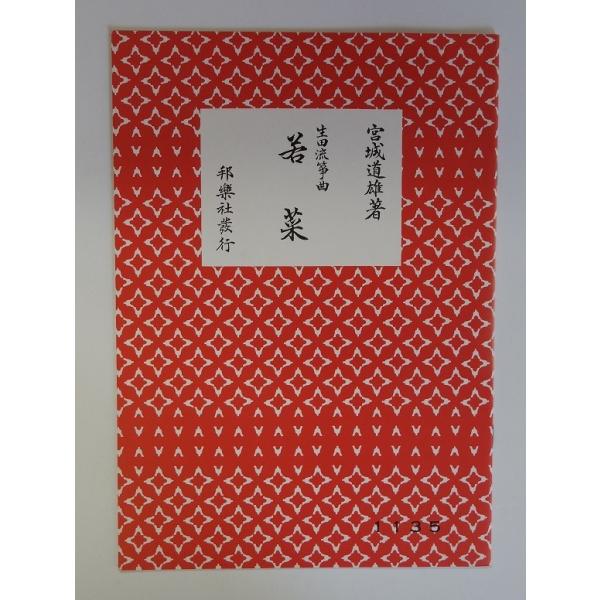 宮城道雄著
生田流箏曲
若菜
邦樂社發行
1135